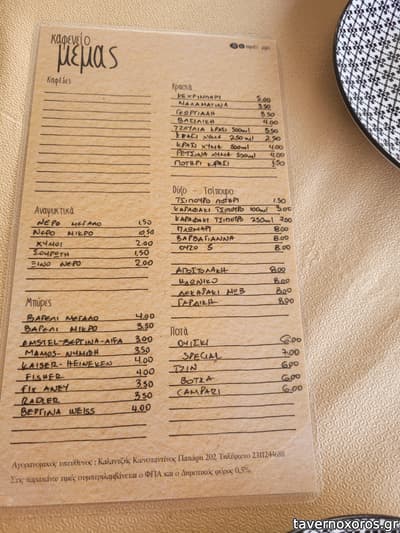 καφενείο
μέμας
Καφέδες
Αναψυκτικά
ΝΕΡΟ ΜΕΓΑΛΟ 1,50
ΝΕΡΟ ΜΙΚΡΟ 0,50
ΧΥΜΟΙ 2.00
ΣΟΥΡΩΤΗ 1,50
ΞΙΝΟ ΝΕΡΟ 2.00
Μπύρες
ΒΑΡΕΛΙ ΜΕΓΑΛΟ 4.00
ΒΑΡΕΛΙ ΜΙΚΡΟ 3.50
AMSTEL-ΒΕΡΓΙΝΑ-ΑΛΦΑ 3.00
ΜΑΜΟΣ-ΝΥΜΦΗ 3.50
KAISER-HEINEKEN 4.00
FISHER 4.00
FIX ANEY 3.50
RADLER 3.50
ΒΕΡΓΙΝΑ WEISS 4.00
Κρασιά
ΚΕΧΡΙΜΠΑΡΙ 5.00
ΜΑΛΑΜΑΤΙΝΑ 3.50
ΓΕΩΡΓΙΑΔΗ 3.50
ΒΑΣΙΛΙΚΗ 4.00
ΚΡΑΣΙ ΧΥΜΑ 250ml 2.50
ΚΡΑΣΙ ΧΥΜΑ 500ml 4.00
ΡΕΤΣΙΝΑ ΧΥΜΑ 500ml 4.00
ΠΟΤΗΡΙ ΚΡΑΣΙ
Ούζο - Τσίπουρο
ΤΣΙΠΟΥΡΟ ΠΟΤΗΡΙ 1.50
ΚΑΡΑΦΑΚΙ ΤΣΙΠΟΥΡΟ 100ml 3.00
ΚΑΡΑΦΑΚΙ ΤΣΙΠΟΥΡΟ 250ml 7.00
ΠΛΩΜΑΡΙ 8.00
ΒΑΡΒΑΓΙΑΝΝΗ 8.00
ΟΥΖΟ 8.00
ΑΠΟΣΤΟΛΑΚΗ 8.00
ΗΔΩΝΙΚΟ 8.00
ΔΕΚΑΡΑΚΙ 8.00
ΓΑΡΔΙΚΗ 8.00
Ποτά
ΟΥΙΣΚΙ 6.00
SPECIAL 7.00
ΤΖΙΝ 6.00
ΒΟΤΚΑ 6.00
CAMPARI 6.00
Αγορανομικός υπεύθυνος : Καλαντζής Κωνσταντίνος Παπάφη 202, Τηλέφωνο 2311244688
Στις παραπάνω τιμές συμπεριλαμβάνεται ο ΦΠΑ και ο Δημοτικός φόρος 0,5%.
tavernoxoros.gr